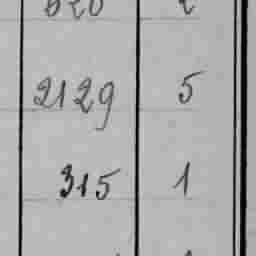 2129 5
315 1